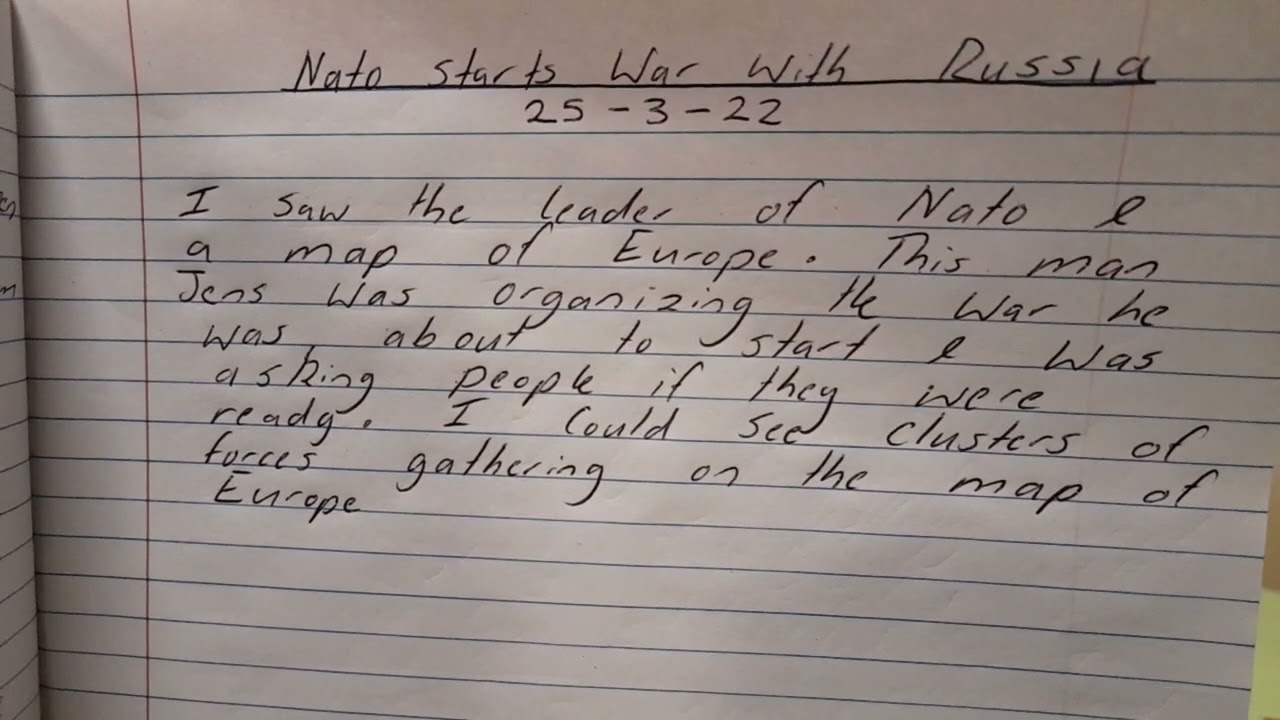 Nato starts War With Russia
25-3-22
I saw the leader of Nato &
a map of Europe. This man
Jens was organizing the war he
was about to start & was
asking people if they were
ready. I could see clusters of
forces gathering on the map of
Europe